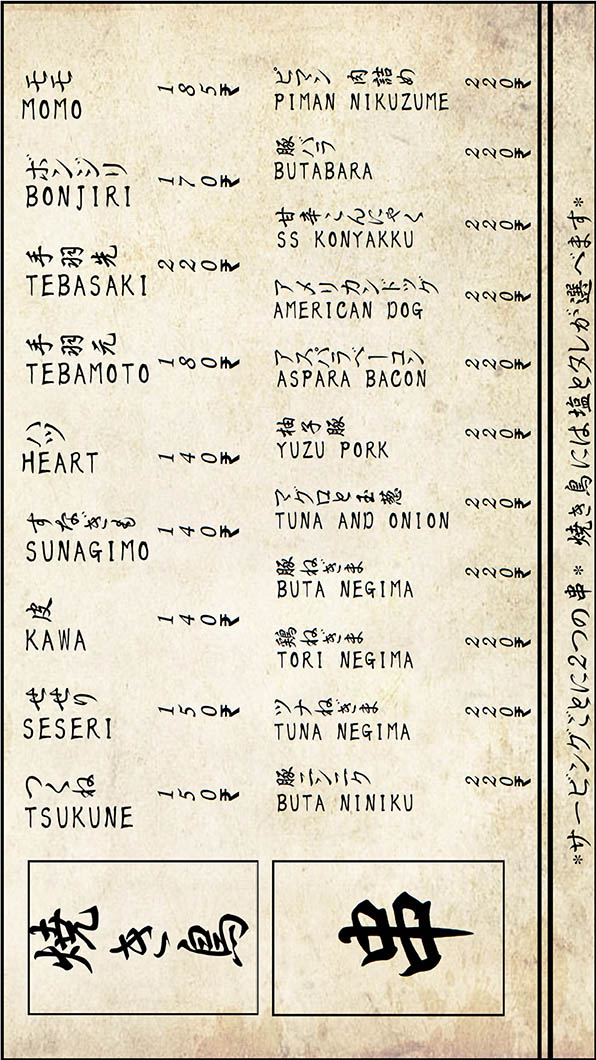 モモ
MOMO
185₹
ボンジリ
BONJIRI
170₹
手羽先
TEBASAKI
220₹
手羽元
TEBAMOTO
180₹
ハツ
HEART
140₹
すなぎも
SUNAGIMO
140₹
皮
KAWA
140₹
せせり
SESERI
150₹
つくね
TSUKUNE
150₹
焼き鳥
ピマン 肉詰め
PIMAN NIKUZUME
220₹
豚バラ
BUTABARA
220₹
甘辛こんにゃく
SS KONYAKKU
220₹
アメリカンドッグ
AMERICAN DOG
220₹
アスパラベーコン
ASPARA BACON
220₹
柚子豚
YUZU PORK
220₹
マグロと玉葱
TUNA AND ONION
220₹
豚ねぎま
BUTA NEGIMA
220₹
鶏ねぎま
TORI NEGIMA
220₹
ツナねぎま
TUNA NEGIMA
220₹
豚ニンニク
BUTA NINIKU
220₹
串
*サービングごとに2つの串* 焼き鳥には塩とタレが選べます*